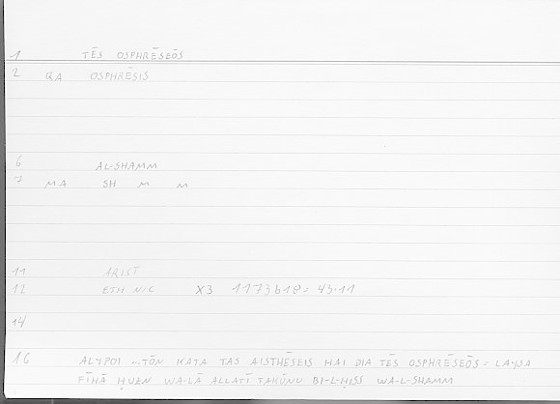 1 TĒS OSPHRĒSEŌS
2 QA OSPHRĒSIS
6 AL-SHAMM
7 MA SH M M
11 ARIST
12 ETH NIC X3 1173b18 = 43.11
14
16 ALYPOI – TŌN KATA TAS AISTHĒSEIS HAI DIA TĒS OSPHRĒSEŌS = LAYSA
FĪHĀ ḤUZN WA-LĀ ALLATĪ TAKŪNU BI-L-ḤISS WA-L-SHAMM